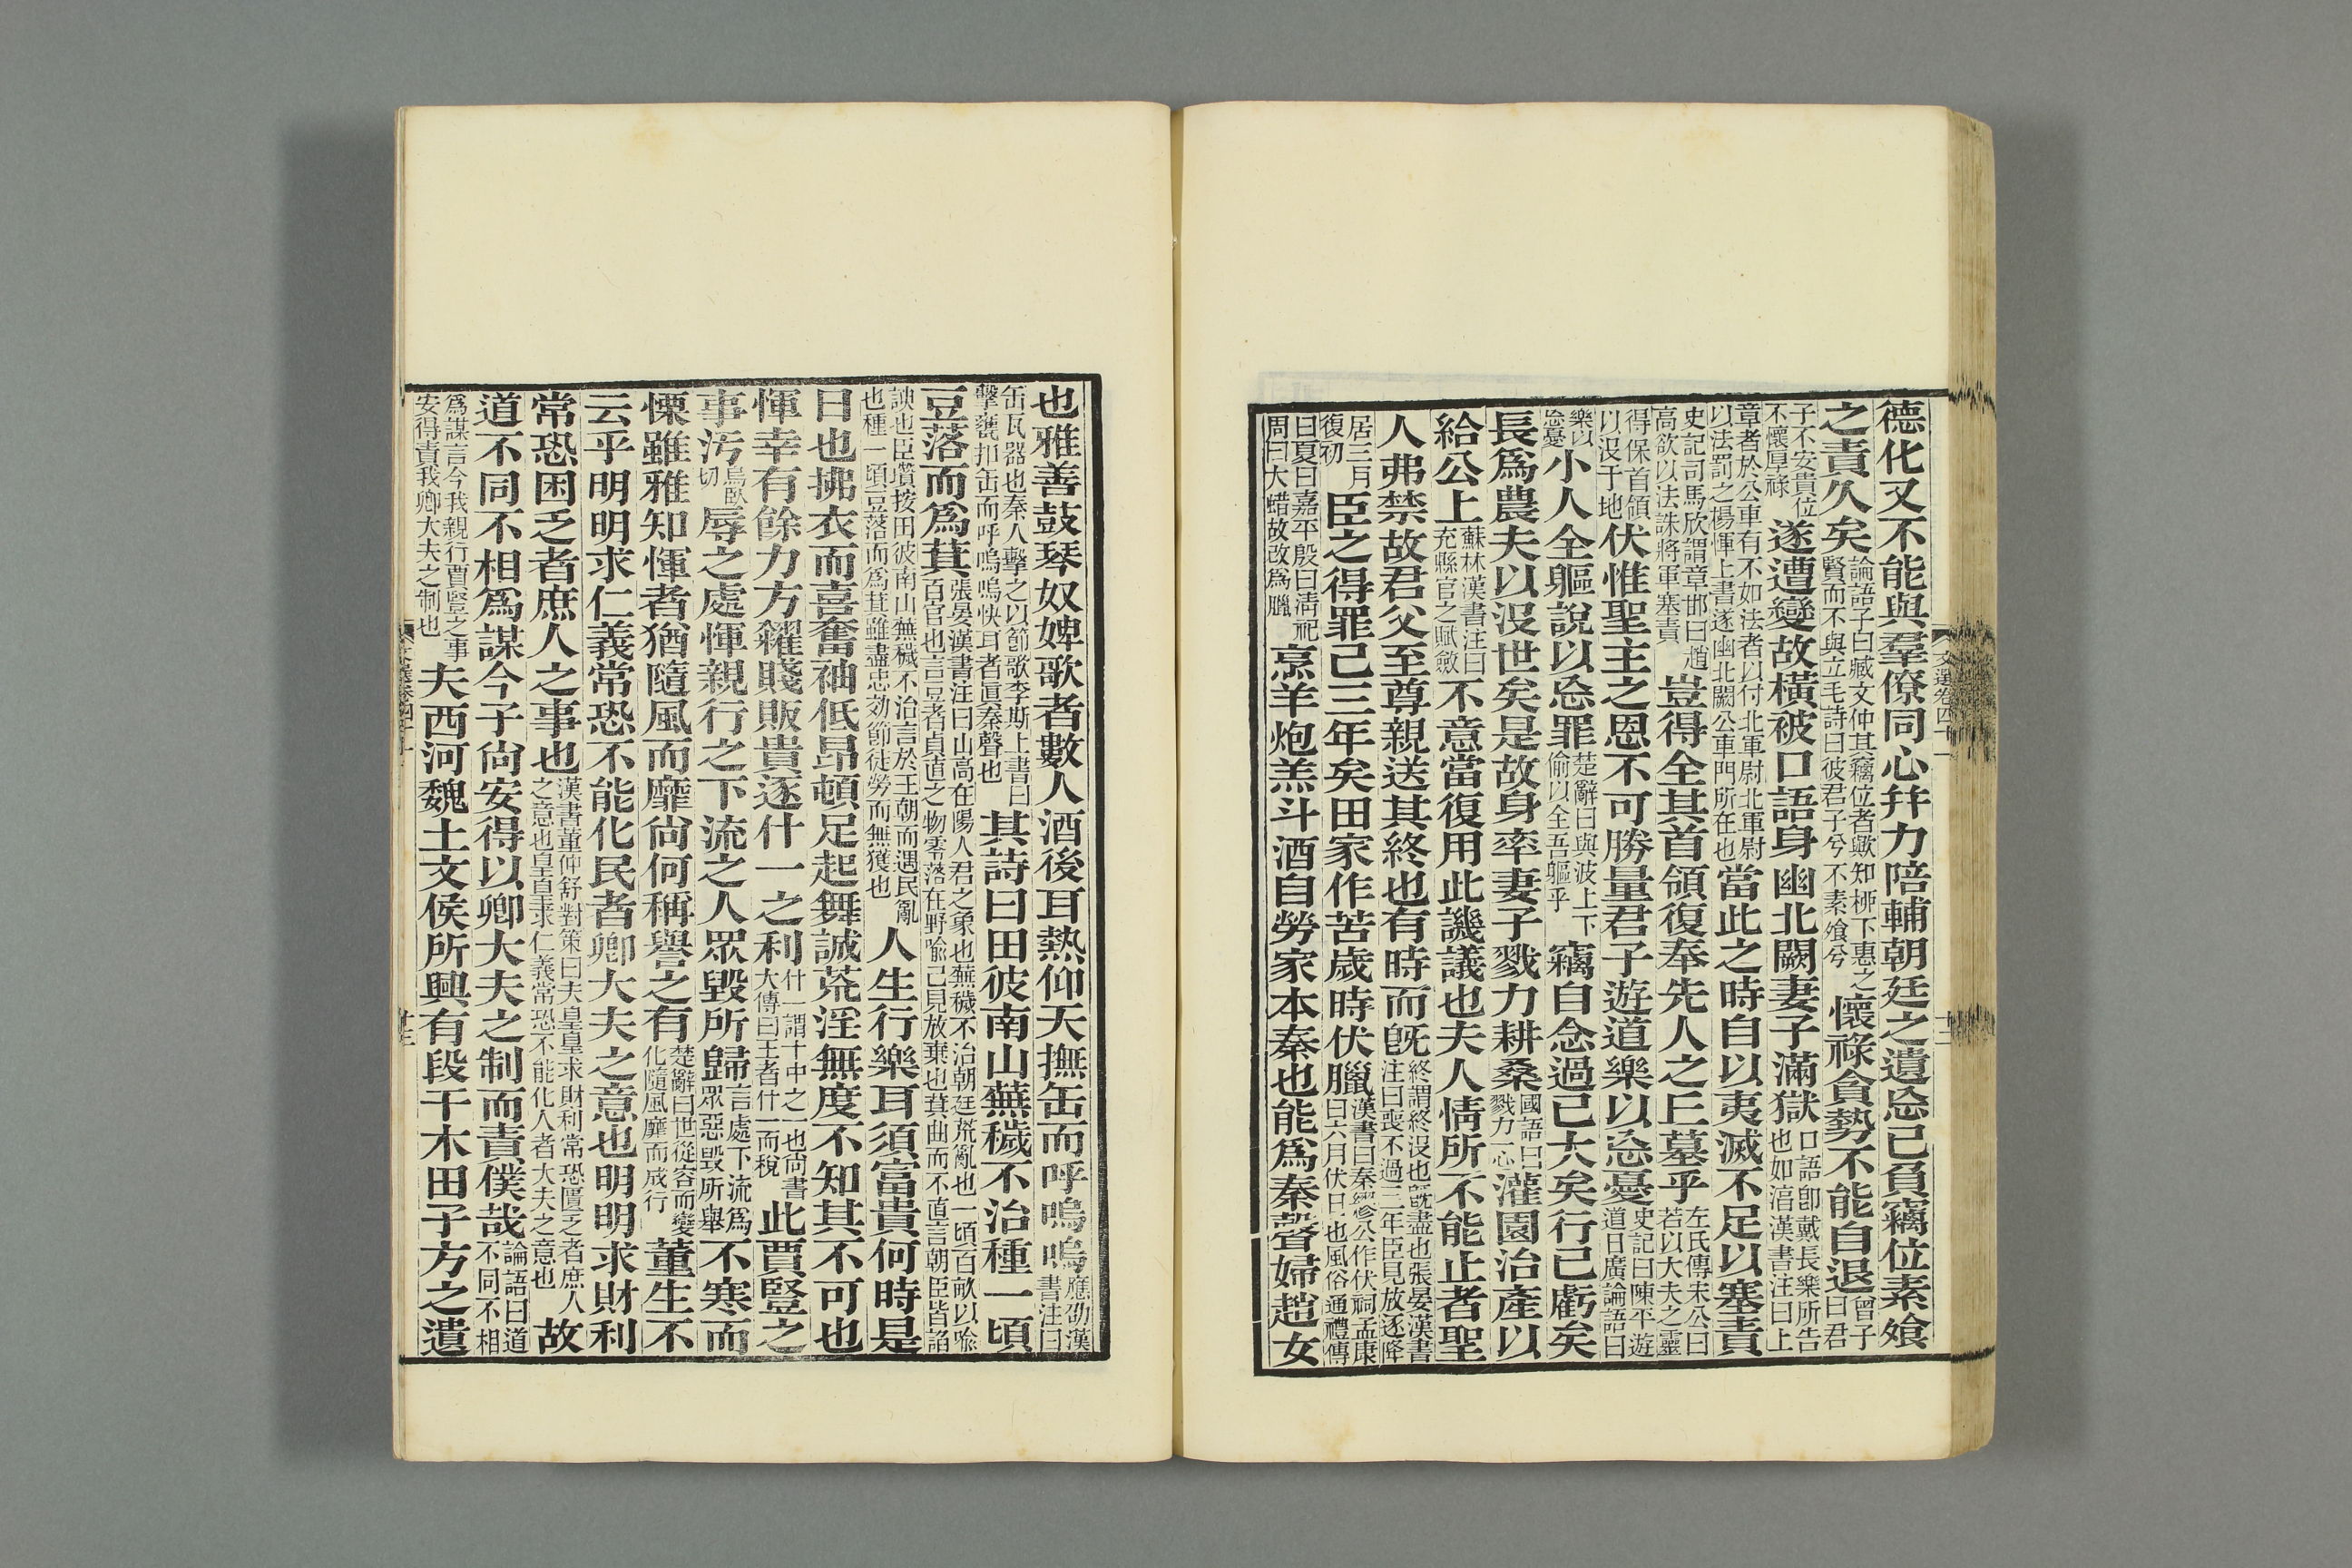 德化又不能與羣僚同心幷力陪輔朝廷之遺忘已負竊位素飡
之責久矣論語子曰臧文仲其竊位者歟知柳下惠之賢而不與立毛詩曰彼君子兮不素飡兮懷祿貪勢不能自退曾子曰君
子不安貴位不懷厚祿遂遭變故橫被口語身幽北闕妻子滿獄口語卽戴長樂所告也如淳漢書注曰上
章者於公車有不如法者以付北軍尉北軍尉以法罰之楊惲上書遂幽北闕公車門所在也當此之時自以夷滅不足以塞責
史記司馬欣謂章邯曰趙高欲以法誅將軍塞責豈得全其首領復奉先人之丘墓乎左氏傳宋公曰若以大夫之靈
得保首領以没于地伏惟聖主之恩不可勝量君子遊道樂以忘憂史記曰陳平遊道日廣論語曰
樂以忘憂小人全軀說以忘罪楚辭曰與波上下偷以全吾軀乎竊自念過已大矣行已虧矣
長爲農夫以没世矣是故身率妻子戮力耕桑國語曰戮力一心灌園治產以
給公上蘇林漢書注曰充縣官之賦斂不意當復用此譏議也夫人情所不能止者聖
人弗禁故君父至尊親送其終也有時而旣終謂終没也旣盡也張晏漢書注曰喪不過三年臣見放逐降
居三月復初臣之得罪已三年矣田家作苦歲時伏臘漢書曰秦繆公作伏祠孟康曰六月伏日也風俗通禮傳
曰夏曰嘉平殷曰淸祀周曰大蜡故改爲臘烹羊炮羔斗酒自勞家本秦也能爲秦聲婦趙女
文選卷四十一
十三
也雅善鼓琴奴婢歌者數人酒後耳熱仰天撫缶而呼嗚嗚應劭漢書注曰
缶瓦器也秦人擊之以節歌李斯上書曰擊甕扣缶而呼嗚嗚快耳者眞秦聲也其詩曰田彼南山蕪穢不治種一頃
豆落而爲萁張晏漢書注曰山高在陽人君之象也蕪穢不治朝廷荒亂也一頃百畝以喩百官也言豆者貞直之物零落在野喩己見放棄也萁曲而不直言朝臣皆諂
諛也臣瓚按田彼南山蕪穢不治言於王朝而遇民亂也種一頃豆落而爲萁雖盡忠効節徒勞而無獲也人生行樂耳須富貴何時是
日也拂衣而喜奮袖低昂頓足起舞誠荒淫無度不知其不可也
惲幸有餘力方糴賤販貴逐什一之利什一謂十中之一也尙書大傳曰王者什一而稅此賈豎之
事汚烏臥切辱之處惲親行之下流之人眾毀所歸言處下流爲眾惡毀所舉不寒而
慄雖雅知惲者猶隨風而靡尙何稱譽之有楚辭曰世從容而變化隨風靡而成行董生不
云乎明明求仁義常恐不能化民者卿大夫之意也明明求財利
常恐困乏者庶人之事也漢書董仲舒對策曰夫皇皇求財利常恐匱乏者庶人之意也皇皇求仁義常恐不能化人者大夫之意也故
道不同不相爲謀今子尙安得以卿大夫之制而責僕哉論語曰道不同不相
爲謀言今我親行賈豎之事安得責我卿大夫之制也夫西河魏土文侯所興有段干木田子方之遺